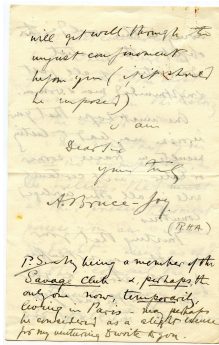 will get well through the
unjust confinement
before you (if it should
be imposed)
I am
Dear Sir
yours truly
A. Bruce-Joy
(R.H.A.)
P.S. my being a member of the
Savage Club - & perhaps the
only one now, temporarily
living in Paris - may perhaps
be considered as a slight excuse
for my venturing to write to you.